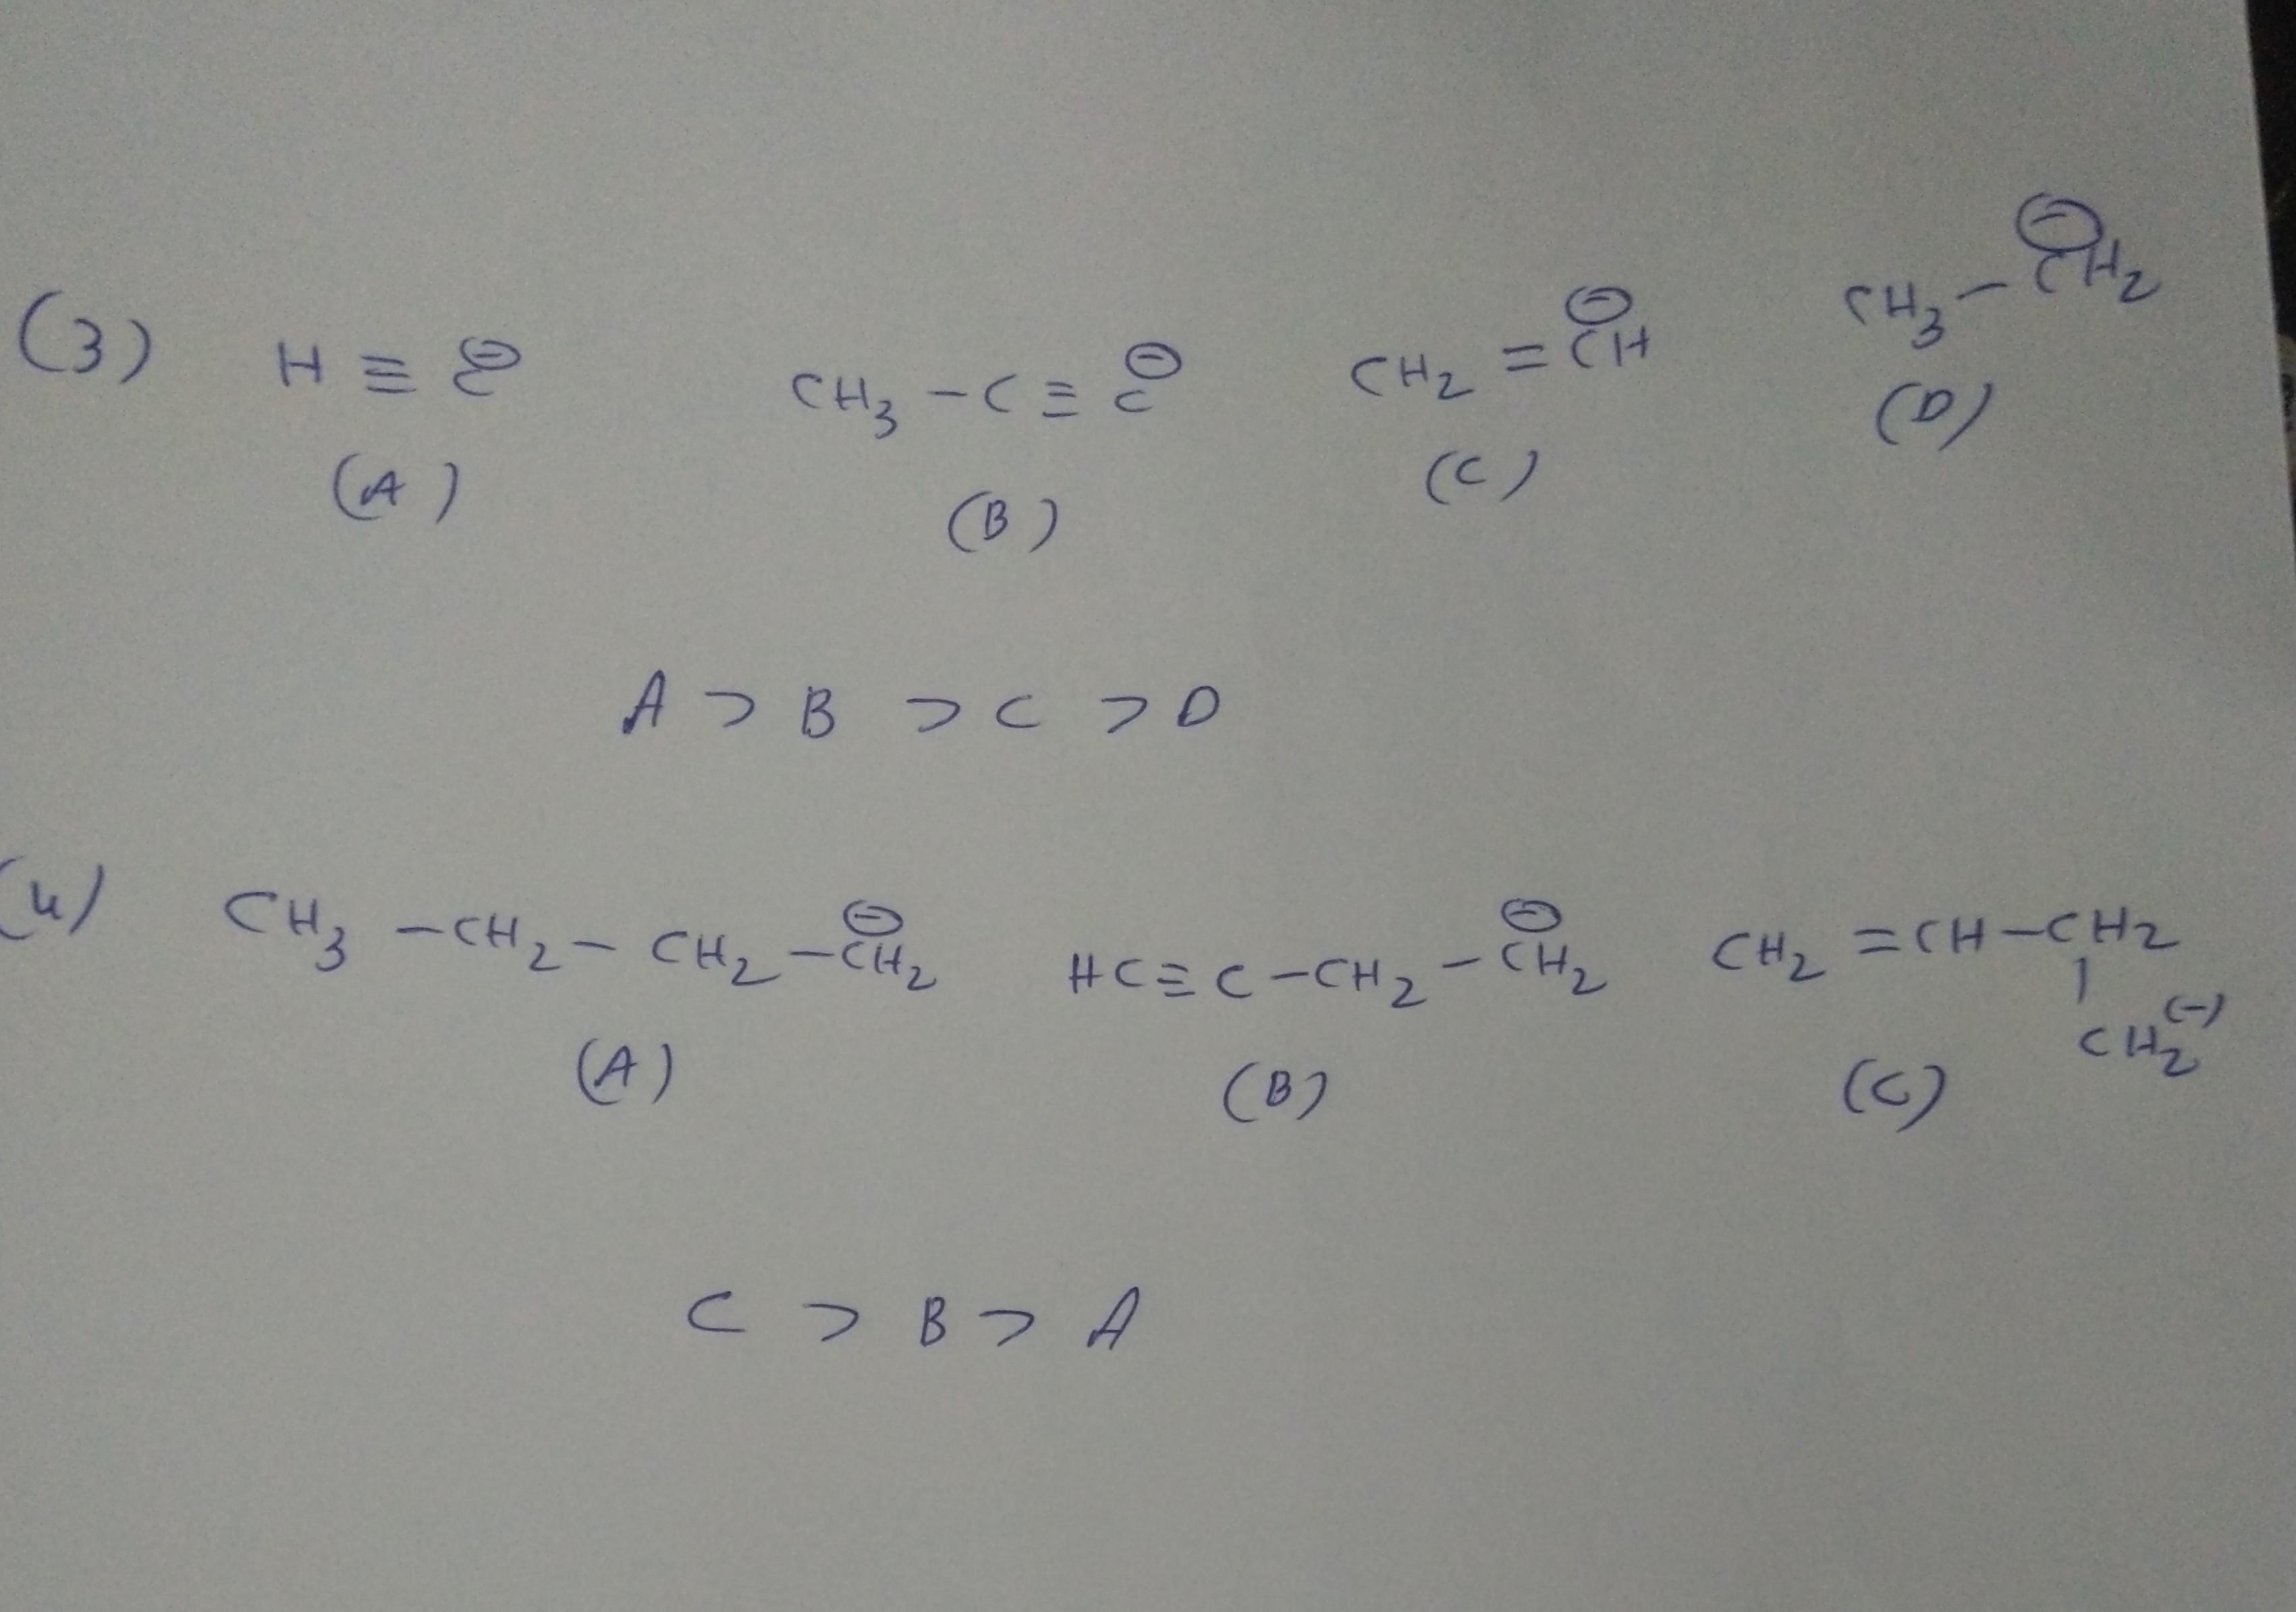 (3) H ≡ C⊖ CH₃ – C ≡ C⊖ CH₂ = C⊖H CH₃ – C⊖H₂
(A) (B) (C) (D)
A > B > C > D
(4) CH₃ – CH₂ – CH₂ – C⊖H₂ HC ≡ C – CH₂ – C⊖H₂ CH₂ = CH – CH₂
|
CH₂(-)
(A) (B) (C)
C > B > A